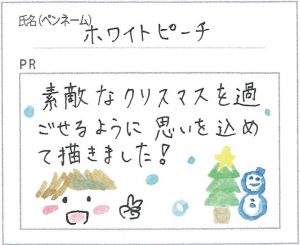 氏名(ペンネーム)
ホワイトピーチ
PR
素敵なクリスマスを過
ごせるように思いを込め
て描きました!